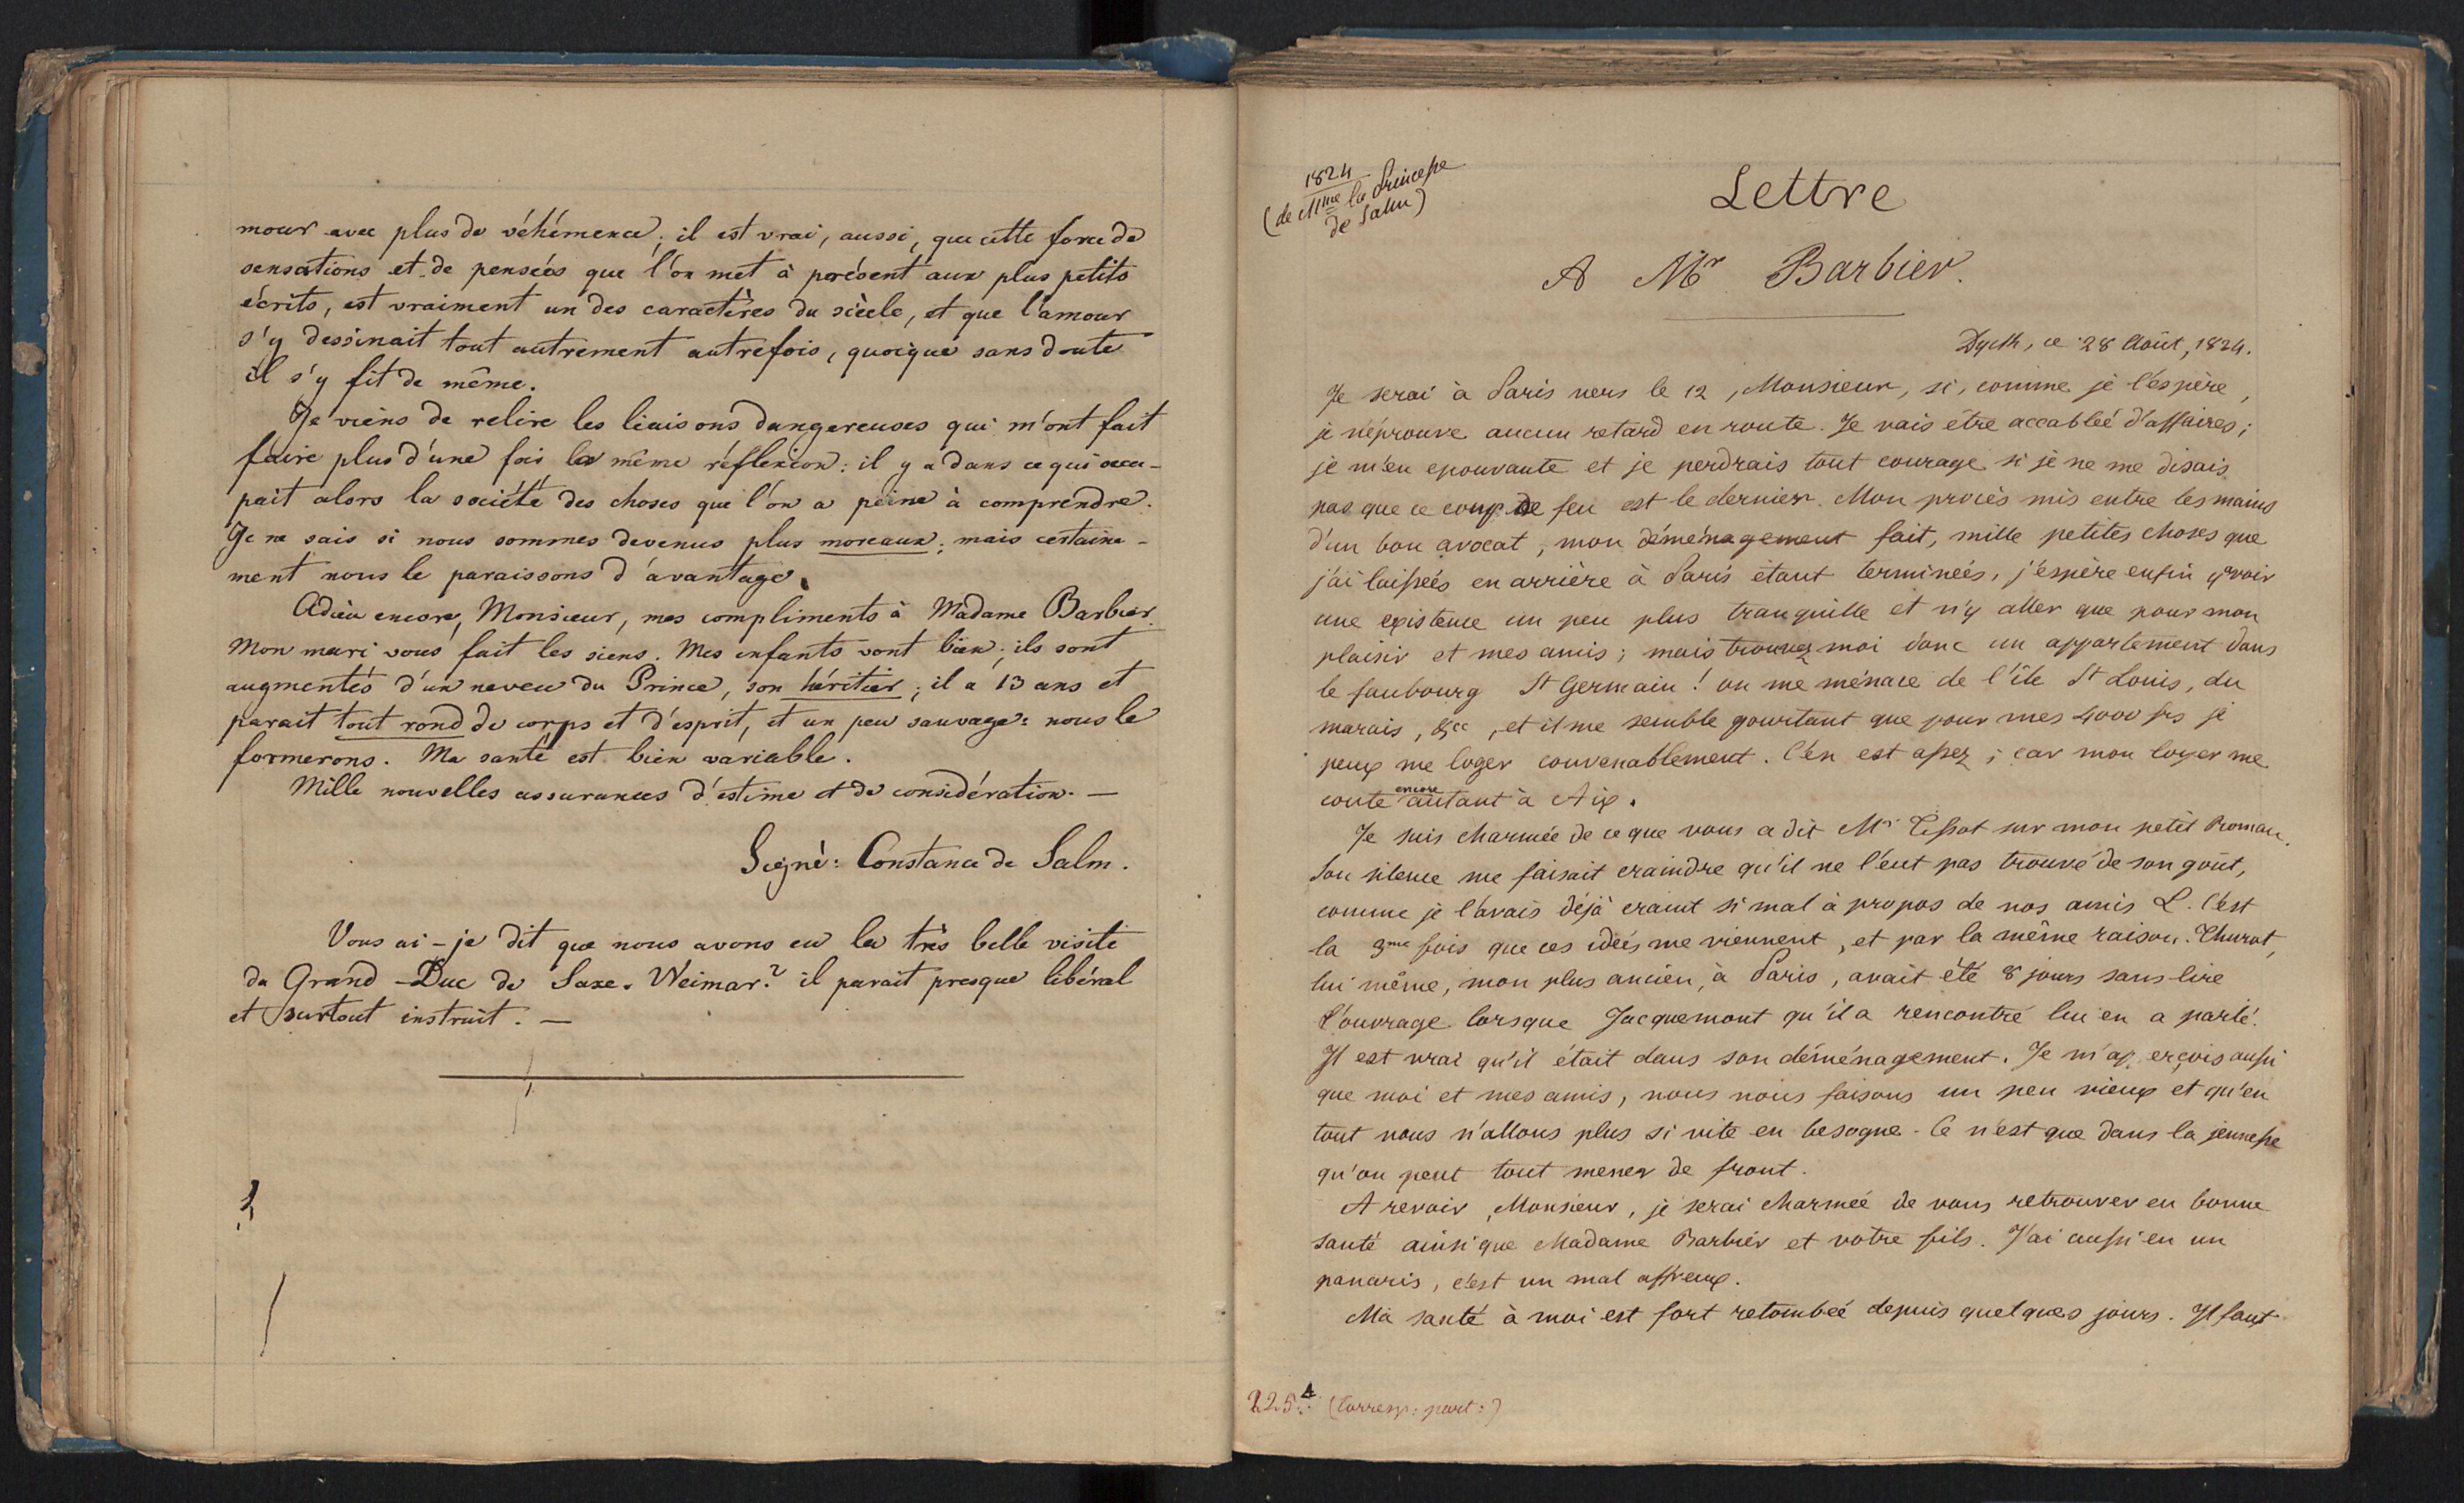 mour avec plus de véhémence; il est vrai, aussi, que cette force de
sensations et de pensées que l'on met à présent aux plus petits
écrits, est vraiment un des caractères du siècle, et que l'amour
s'y dessinait tout autrement autrefois, quoique sans doute
il s'y fit de même.
Je viens de relire les liaisons dangereuses qui m'ont fait
faire plus d'une fois la même réflexion: il y a dans ce qui occu-
pait alors la société des choses que l'on a peine à comprendre.
Je ne sais si nous sommes devenus plus moraux; mais certaine-
ment nous le paraissons d'avantage.
Adieu encore, Monsieur, mes compliments à Madame Barbier.
Mon mari vous fait les siens. Mes enfants vont bien; ils sont
augmentés d'un neveu du Prince, son héritier; il a 13 ans et
parait tout rond de corps et d'esprit, et un peu sauvage: nous le
formerons. Ma santé est bien variable.
Mille nouvelles assurances d'estime et de considération. —
Signé: Constance de Salm.
Vous ai-je dit que nous avons eu la très belle visite
du Grand-Duc de Saxe-Weimar? il parait presque libéral
et surtout instruit. —
1824
(de Mme la Princesse
de Salm)
Lettre
A Mr Barbier.
Dyck, ce 28 Août, 1824.
Je serai à Paris vers le 12, Monsieur, si, comme je l'espère,
je n'éprouve aucun retard en route. Je vais être accablée d'affaires;
je m'en epouvante et je perdrais tout courage si je ne me disais
pas que ce coup de feu est le dernier. Mon procès mis entre les mains
d'un bon avocat, mon déménagement fait, mille petites choses que
j'ai laissées en arrière à Paris étant terminées, j'espère enfin y avoir
une existence un peu plus tranquille et n'y aller que pour mon
plaisir et mes amis; mais trouvez moi donc un appartement dans
le faubourg St Germain! on me ménace de l'île St Louis, du
marais, &cc, et il me semble pourtant que pour mes 4000 frs je
peux me loger convenablement. C'en est assez; car mon loyer me
coute encore autant à Aix.
Je suis charmée de ce que vous a dit Mr Tissot sur mon petit Roman.
Son silence me faisait craindre qu'il ne l'eut pas trouvé de son goût,
comme je l'avais déjà craint si mal à propos de nos amis L. C'est
la 3me fois que ces idées me viennent, et par la même raison. Thurot,
lui même, mon plus ancien, à Paris, avait été 8 jours sans lire
l'ouvrage lorsque Jacquemont qu'il a rencontré lui en a parlé.
Il est vrai qu'il était dans son déménagement. Je m'aperçois aussi
que moi et mes amis, nous nous faisons un peu vieux et qu'en
tout nous n'allons plus si vite en besogne. Ce n'est que dans la jeunesse
qu'on peut tout mener de front.
A revoir, Monsieur, je serai charmée de vous retrouver en bonne
santé ainsi que Madame Barbier et votre fils. J'ai aussi eu un
panaris, c'est un mal affreux.
Ma santé à moi est fort retombée depuis quelques jours. Il faut
225 4 (Corresp: part:)